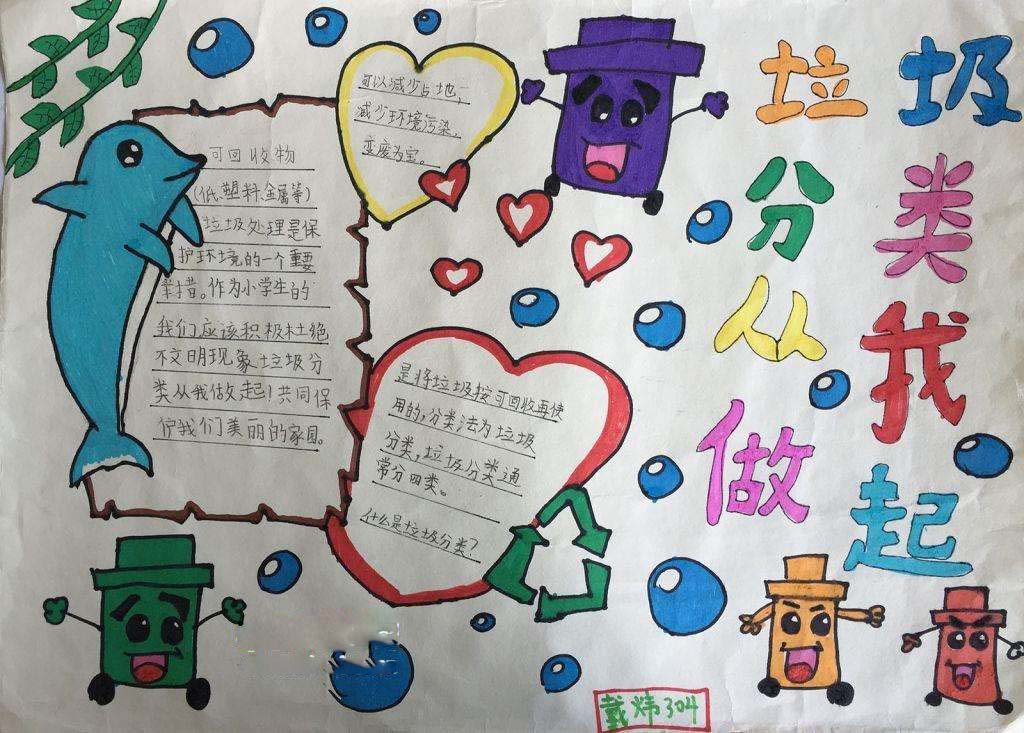 垃圾
分类
从我
做起
可以减少占地,
减少环境污染,
变废为宝。
可回收物
(低、塑料、金属等)
垃圾处理是保
护环境的一个重要
举措。作为小学生的
我们应该积极杜绝
不文明现象垃圾分
类从我做起!共同保
护我们美丽的家园。
是将垃圾按可回收再使
用的,分类法为垃圾
分类,垃圾分类通
常分四类。
什么是垃圾分类?
戴炜304